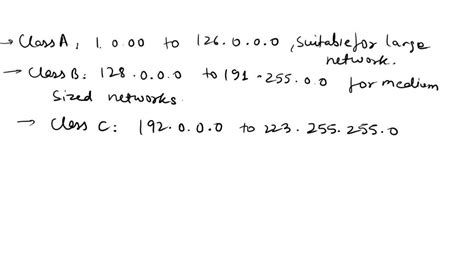 → Class A: 1.0.00 to 126.0.0.0, Suitable for large
network.
→ Class B: 128.0.0.0 to 191.255.0.0 for medium
Sized networks.
→ Class C: 192.0.0.0 to 223.255.255.0